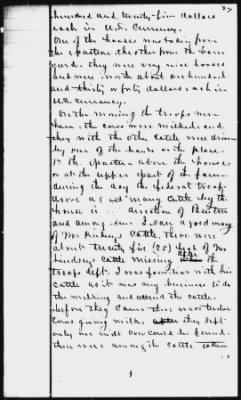 37
hundred and twenty-five dollars
each in U.S. Currency.
One of the horses was taken from
the pasture the other from the barn
yard. they were very nice horses
and were worth about one hundred
and thirty or forty dollars each in
U.S. Currency.
On the morning the troops were
here, the cows were milked and
they with the other cattle were driven
by one of the hands on the place.
to the pasture above the house
or at the upper part of the farm
during the day the federal troops
drove a great many cattle by the
house in direction of
and among them I saw a good many
of Mr. cattle. there were
about twenty five (25) head of Mr.
cattle missing after the
troops left. I was familiar with his
cattle as it was my business to do
the milking and attend the cattle.
before they came there was twelve
cows giving milk, after they left
only one milk cow could be found.
there were among the cattle